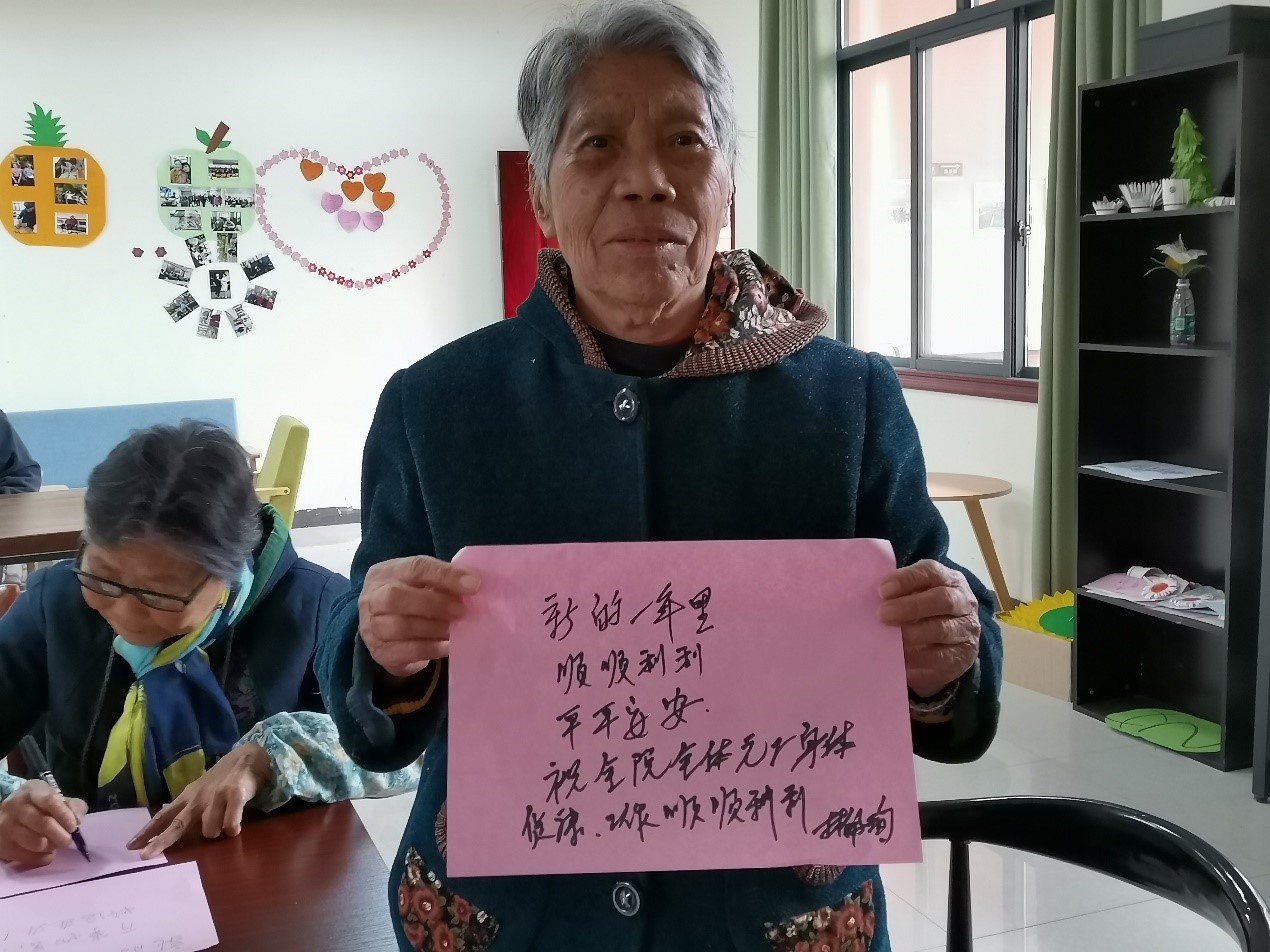 新的一年里
顺顺利利
平平安安.
祝全院全体元工身体
健康、工作顺顺利利